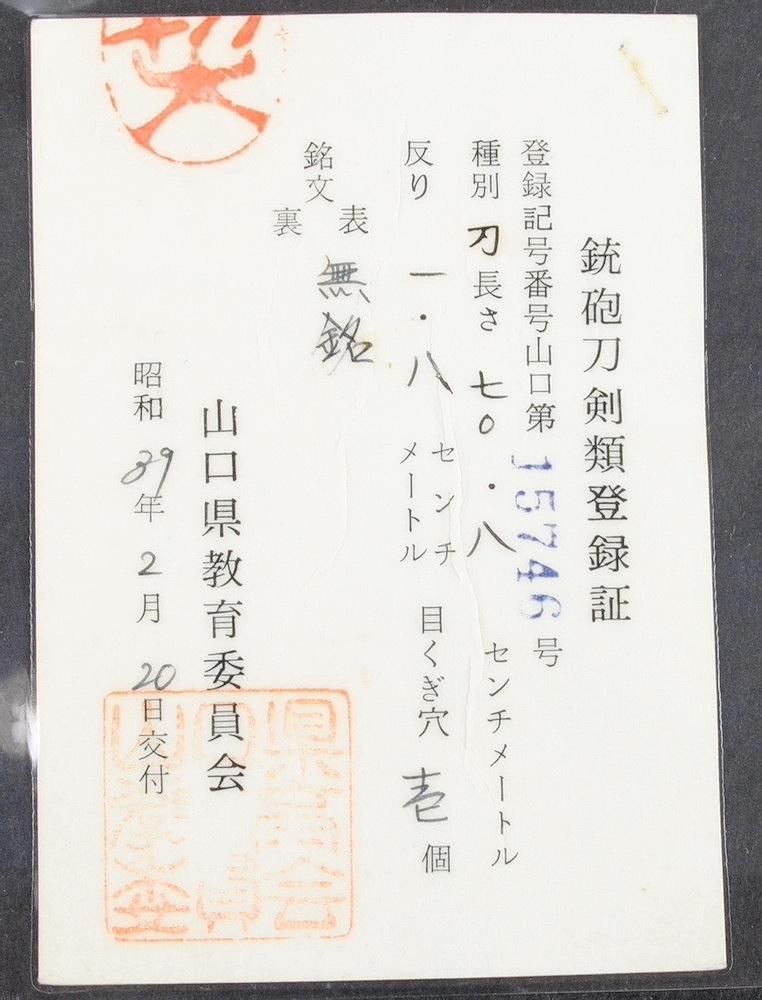 銃砲刀剣類登録証
登録記号番号山口第15746号
種別 刀 長さ 七〇・八 センチメートル
反り 一・八 センチメートル 目くぎ穴 壱 個
銘文 表 無銘
裏
山口県教育委員会
昭和39年2月20日交付